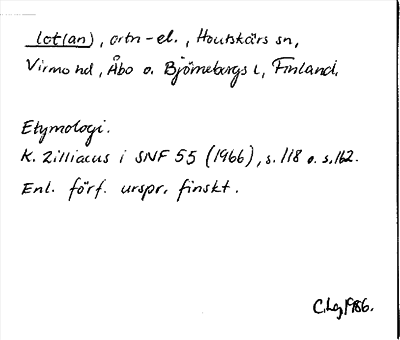 lot(an), ortn-el., Houtskärs sn,
Virmo hd, Åbo o. Björneborgs l, Finland.
Etymologi.
K. Zilliacus i SNF 55 (1966), s. 118 o. s. 162.
Enl. förf. urspr. finskt.
C.Lg 1986.